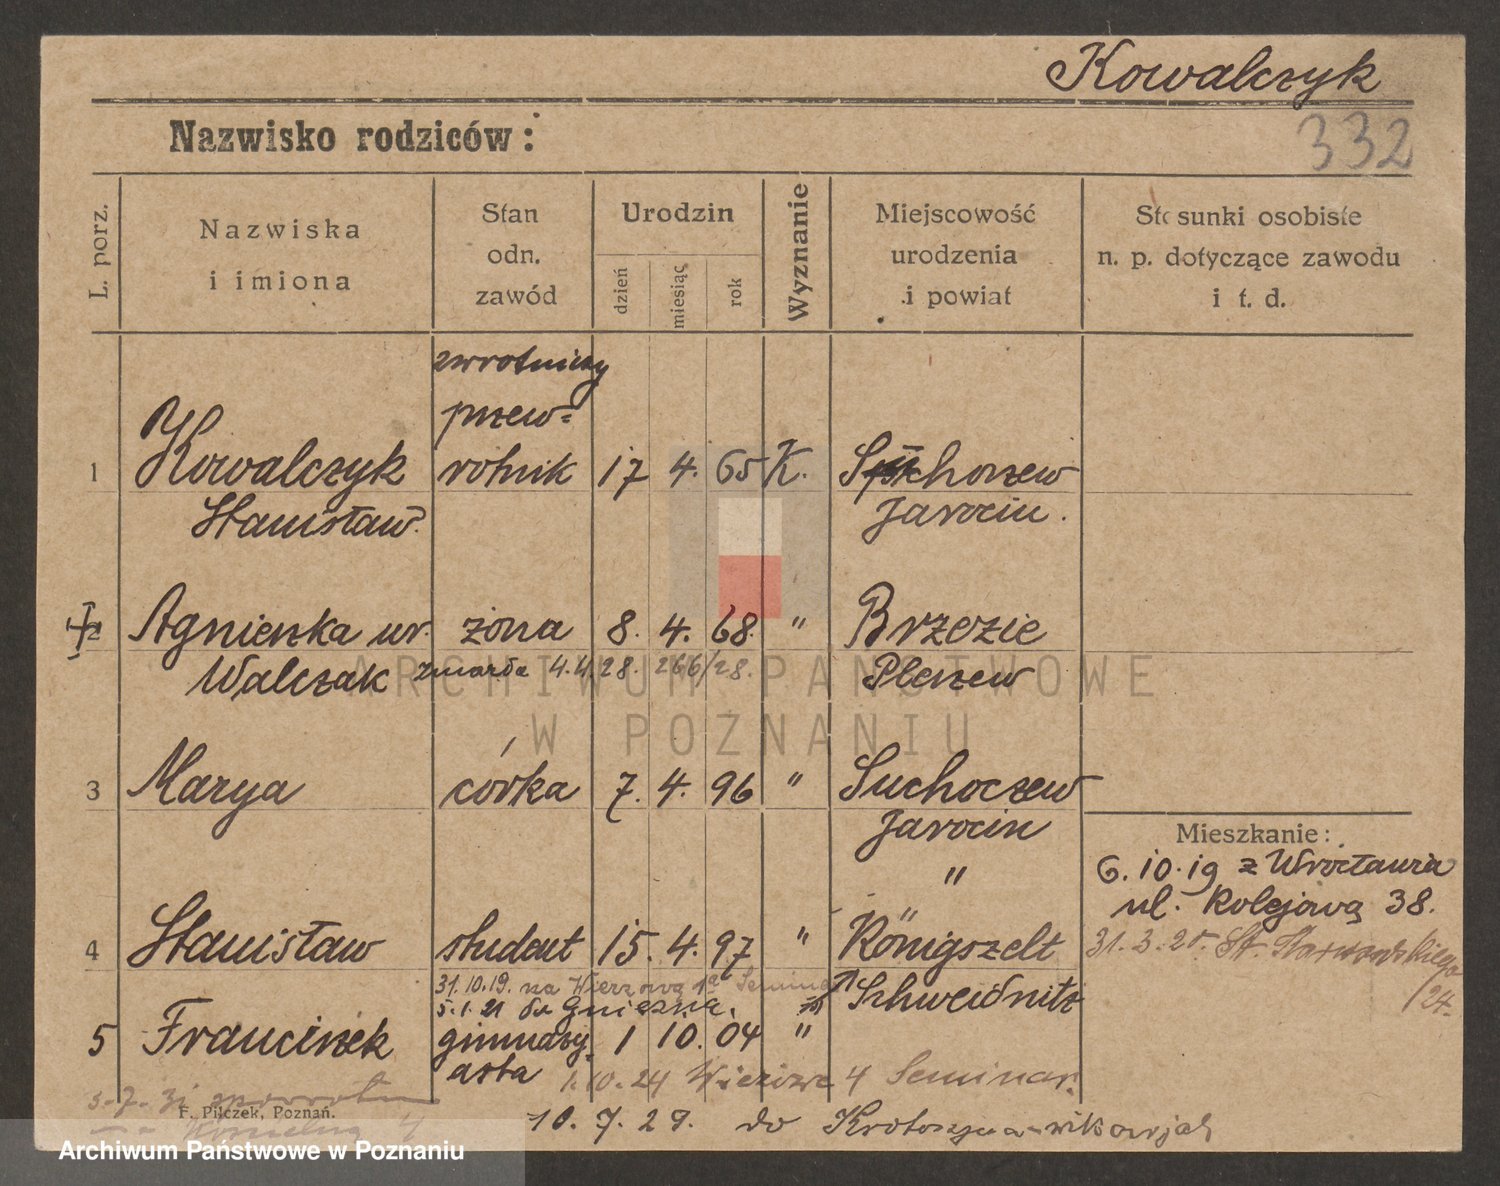 Kowalczyk
332
Nazwisko rodziców:
L. porz.
Nazwiska
i imiona
Stan
odn.
zawód
Urodzin
dzień
miesiąc
rok
Wyznanie
Miejscowość
urodzenia
i powiat
Stosunki osobiste
n. p. dotyczące zawodu
i t. d.
zwrotniczy
przew=
1 Kowalczyk rotnik 17 4. 65 K. Suchorzew
Stanisław. Jarocin.
2 Agnieszka ur. żona 8. 4. 68. " Brzezie
Walczak zmarła 4.4.28. 266/28. Pleszew
3 Marya córka 7. 4. 96 " Suchoczew
Jarocin
"
Mieszkanie:
6. 10. 19 z Wrocławia
ul. Kolejową 38.
31. 3. 25. St.
/24.
4 Stanisław student 15. 4. 97 " Königszelt
31.10.19. na Wieżową Seminar
Schweidnitz
5.1.21 do Gniezna.
5 Franciszek gimnazy= 1 10. 04 "
asta 1.10.24 Wieżowe 4 Seminar.
3.7.31
F. Pilczek, Poznań.
10. 7. 29. do Krotoszyna
ARCHIWUM PAŃSTWOWE
W POZNANIU
Archiwum Państwowe w Poznaniu